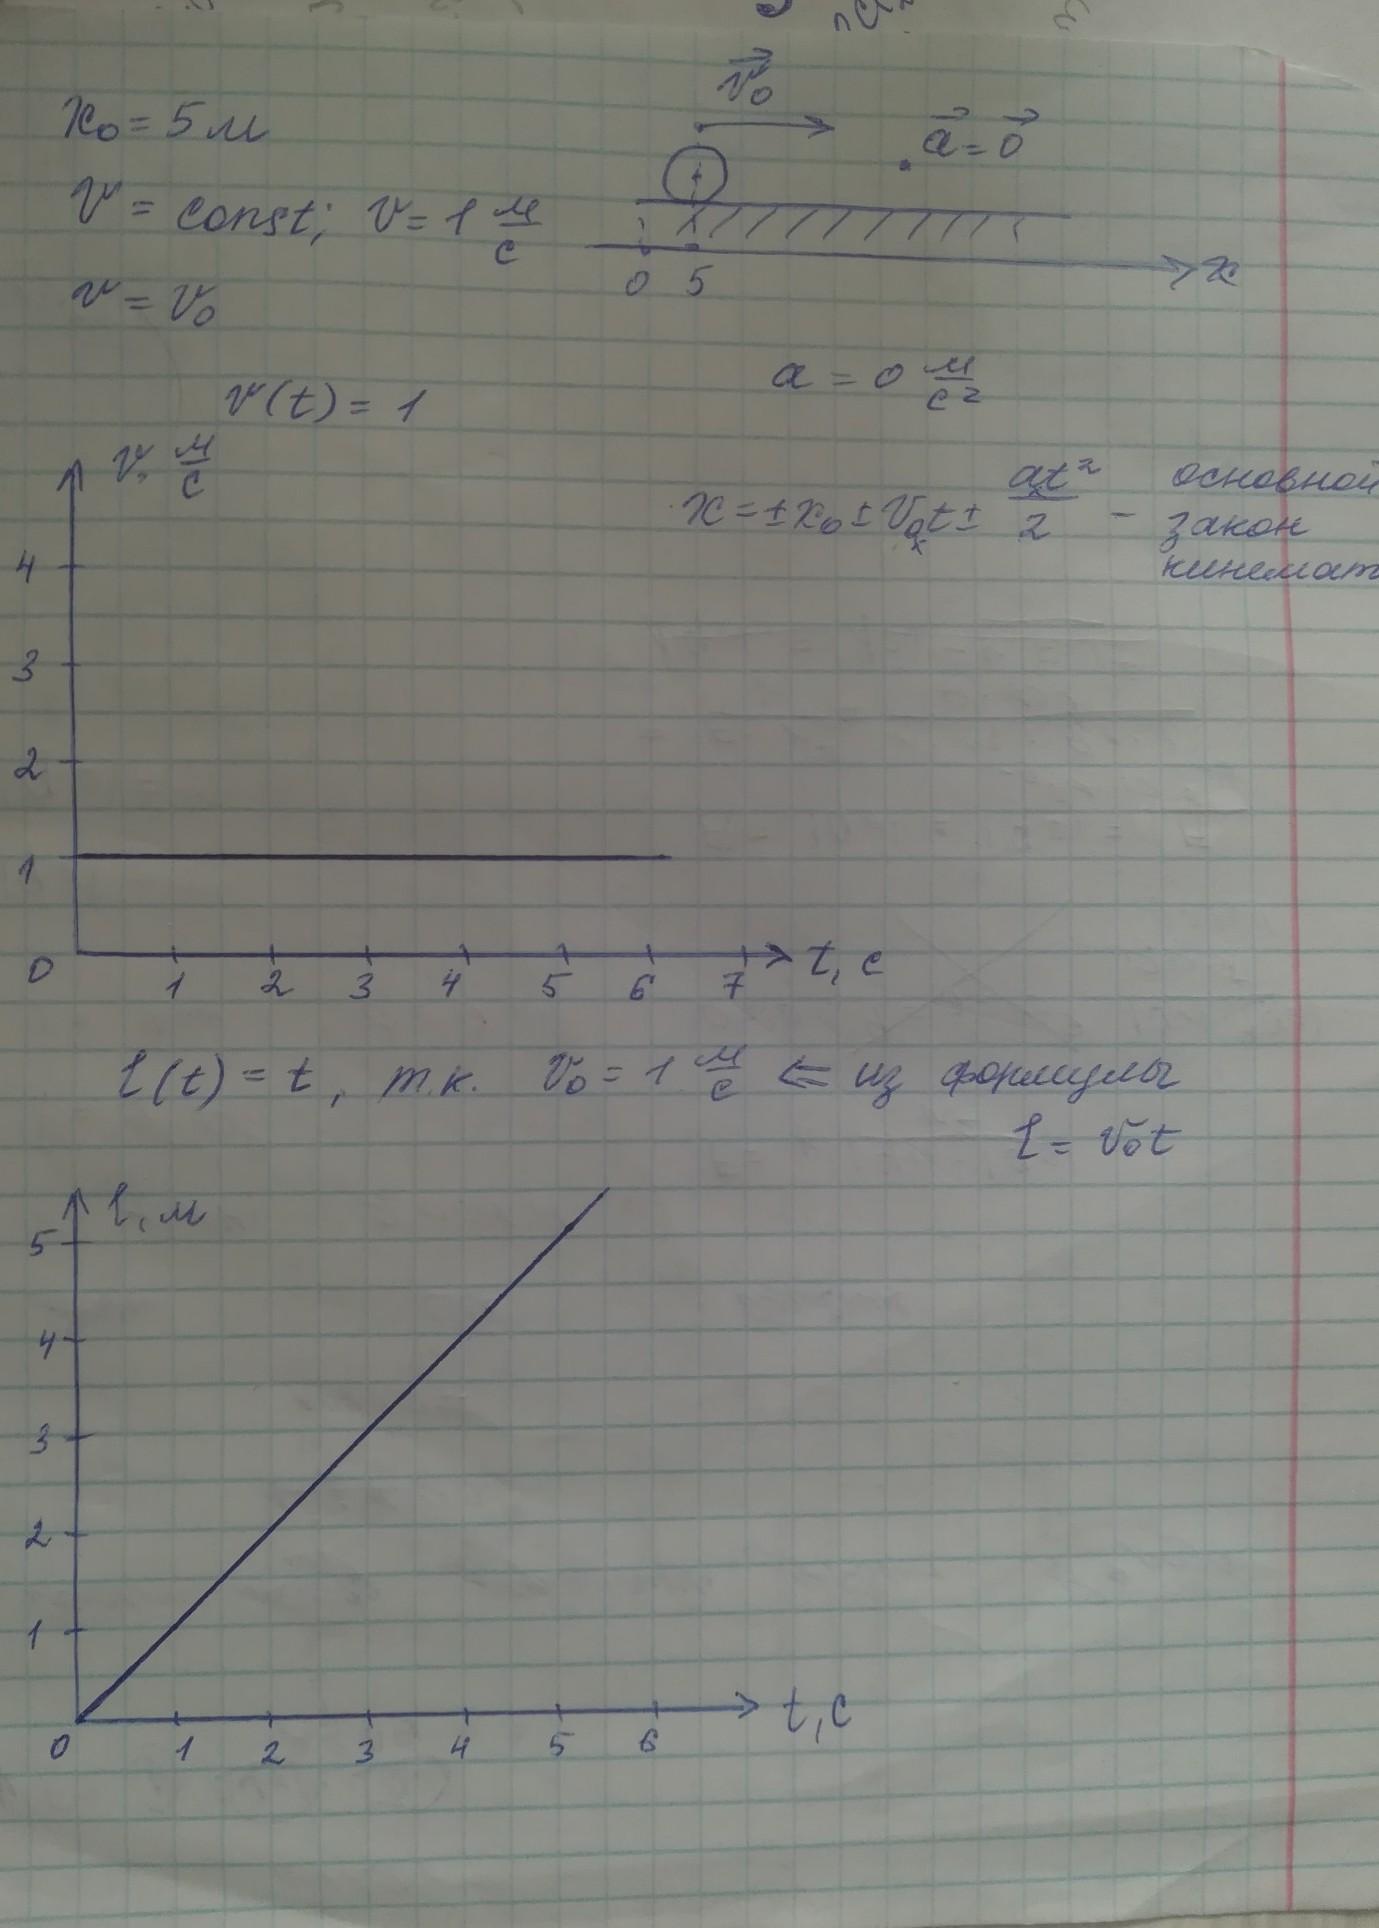 x₀ = 5 м
v⃗₀
a⃗ = 0⃗
v = const; v = 1 м/с
0 5 x
v = v₀
a = 0 м/с²
v(t) = 1
v, м/с
x = ±x₀ ± v₀ₓt ± aₓt²/2 – основной
закон
кинемат
4
3
2
1
0 1 2 3 4 5 6 7 t, с
l(t) = t, т.к. v₀ = 1 м/с ⇐ из формулы
l = v₀t
l, м
5
4
3
2
1
0 1 2 3 4 5 6 t, с